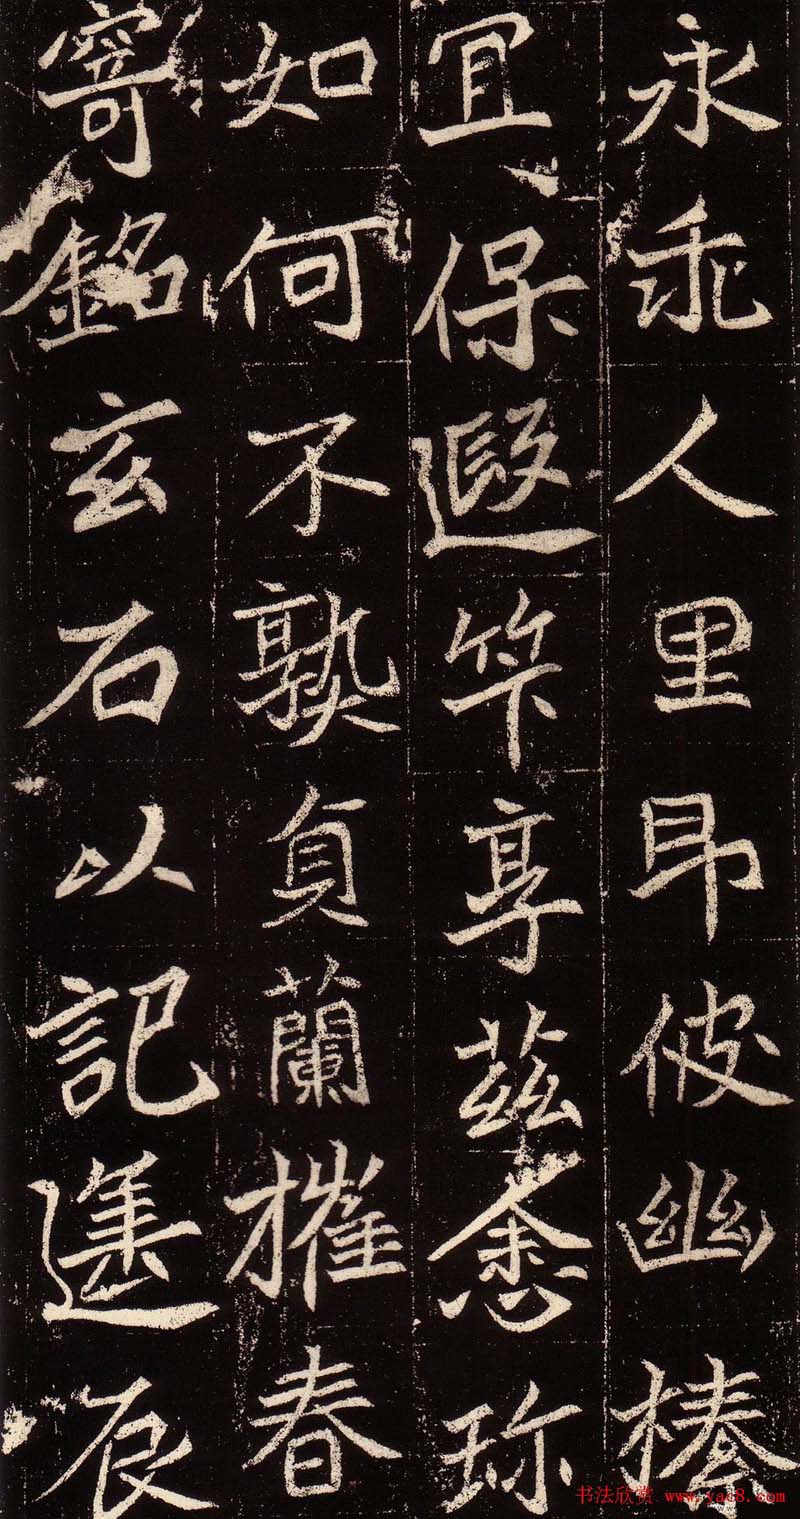 永乖人里即彼幽榛
宜保遐筭享茲悆珎
如何不熟貞蘭摧春
寄銘玄石以記遷辰
书法欣赏 www.yac8.com